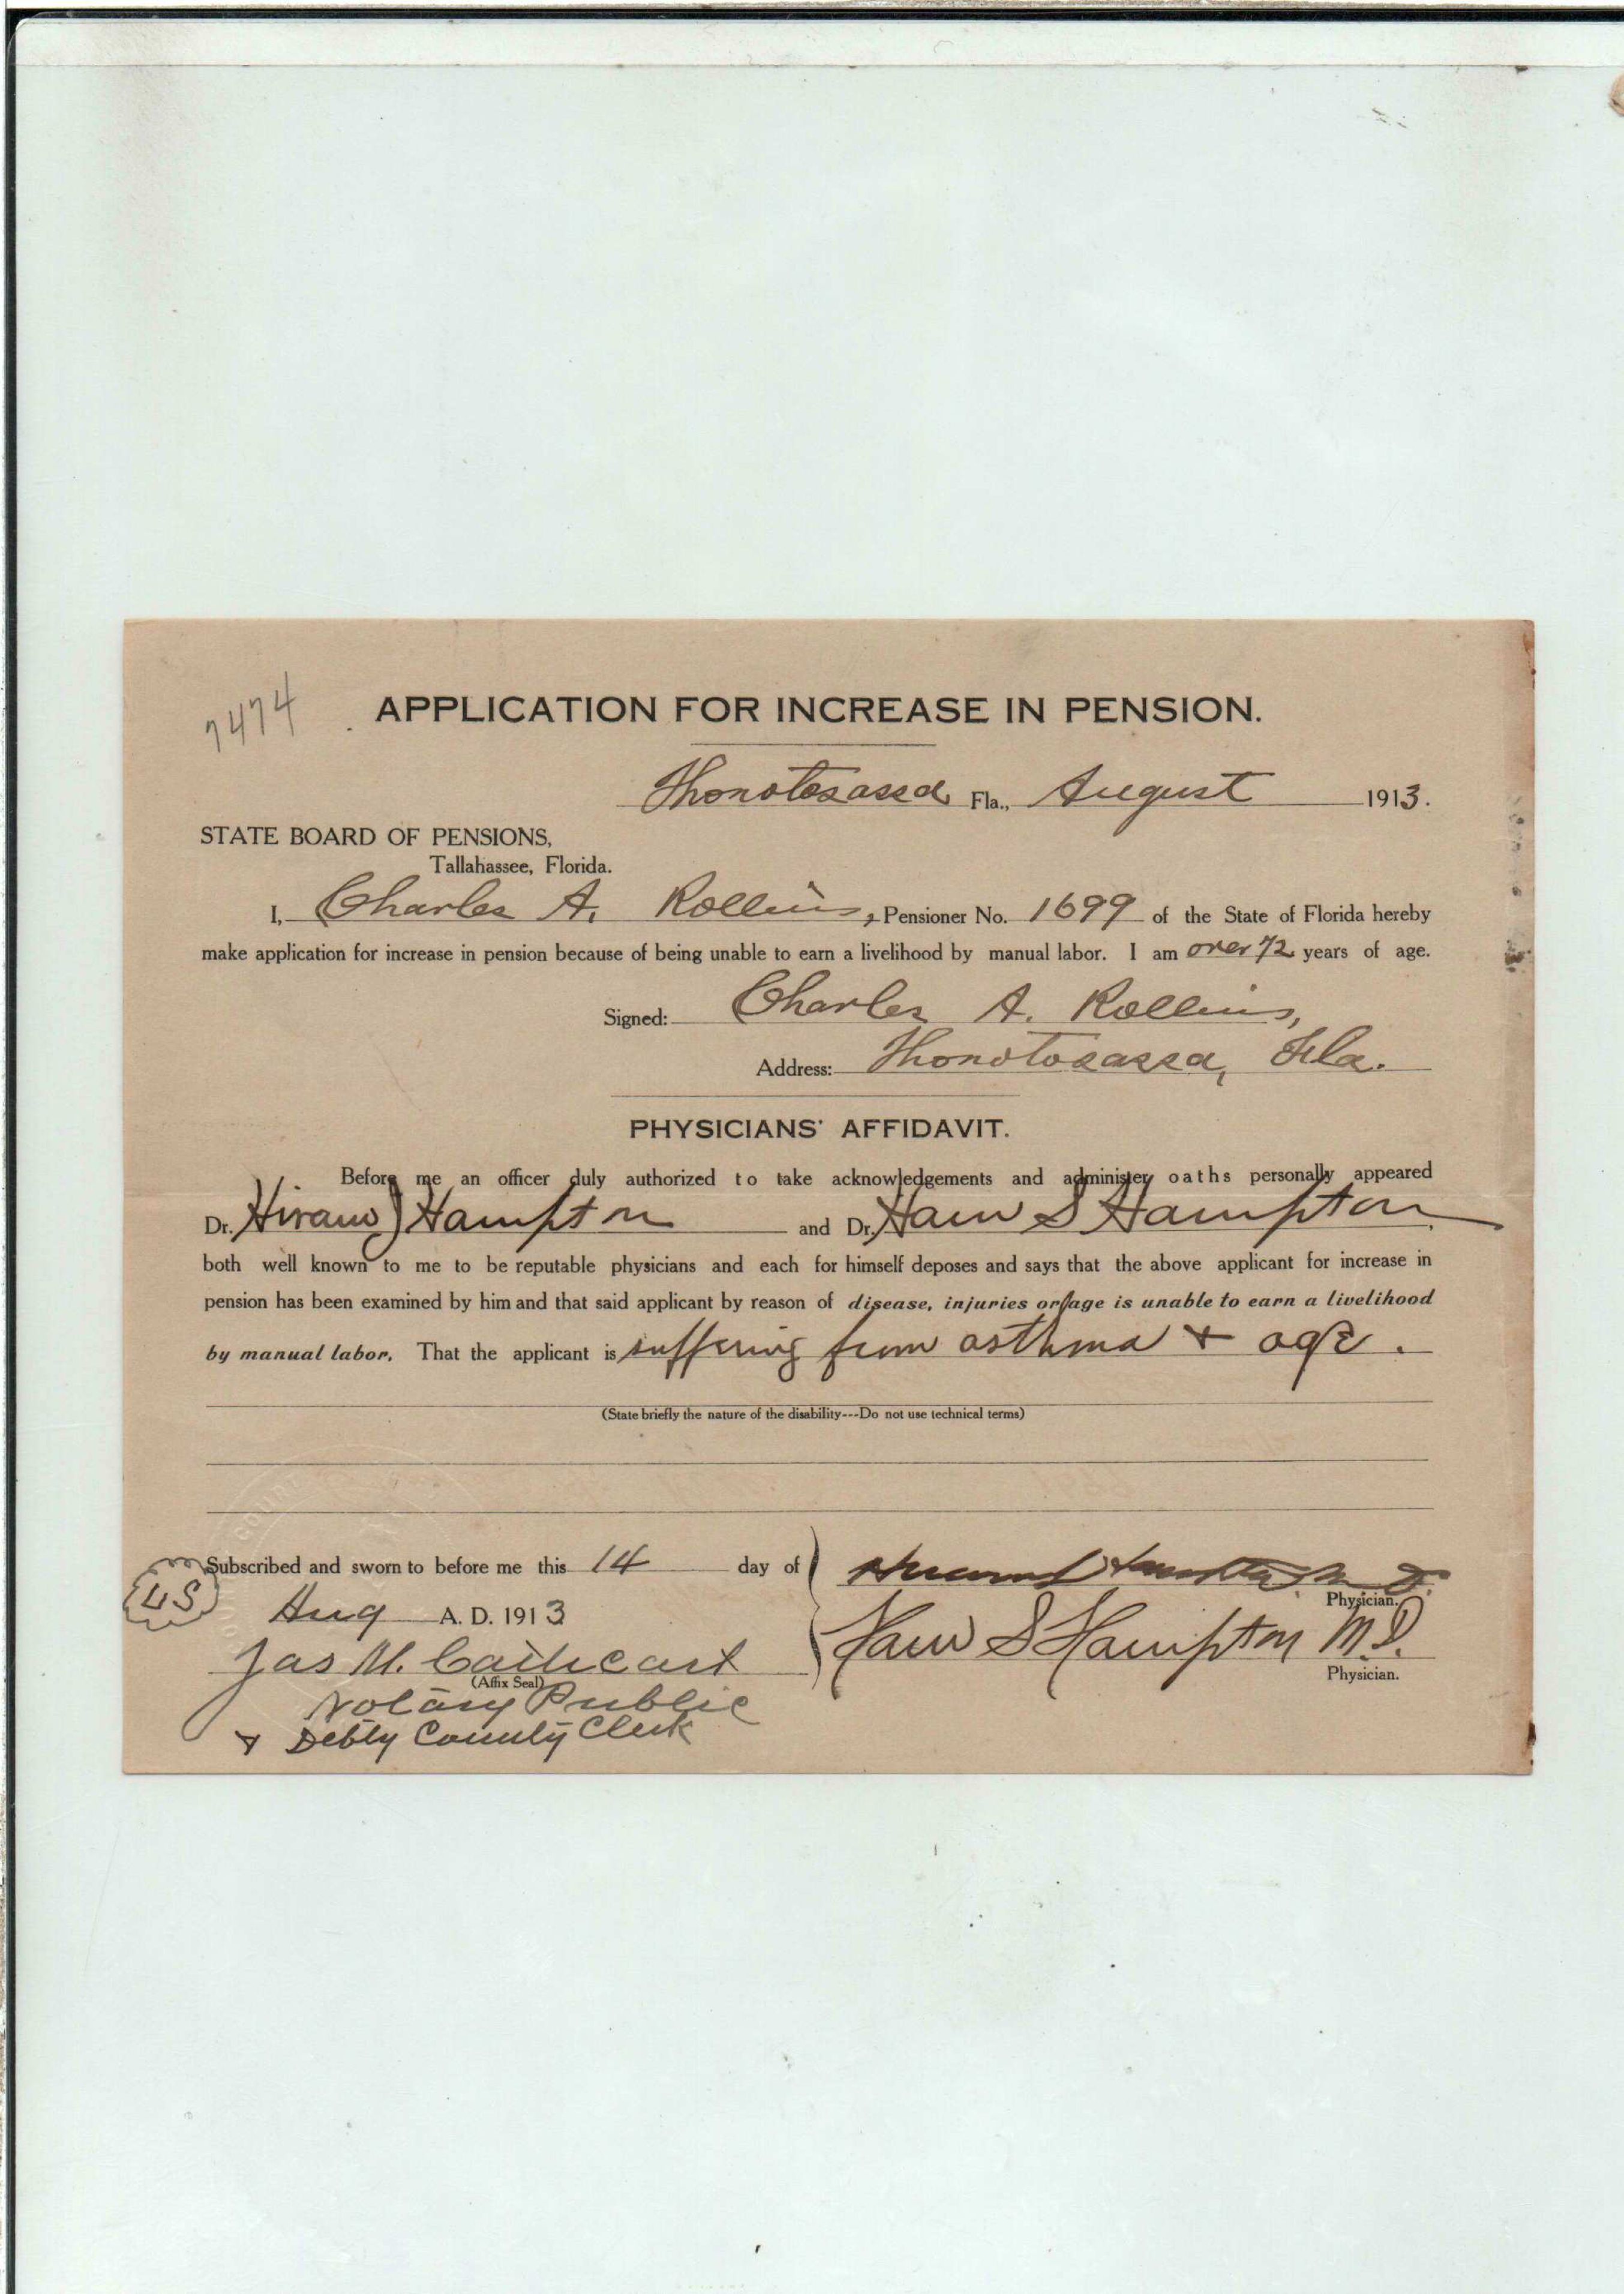 7474
APPLICATION FOR INCREASE IN PENSION.
Thonotosassa Fla., August 1913.
STATE BOARD OF PENSIONS,
Tallahassee, Florida.
I, Charles A. Rollins, Pensioner No. 1699 of the State of Florida hereby
make application for increase in pension because of being unable to earn a livelihood by manual labor. I am over 72 years of age.
Signed: Charles A. Rollins,
Address: Thonotosassa, Fla.
PHYSICIANS' AFFIDAVIT.
Before me an officer duly authorized to take acknowledgements and administer oaths personally appeared
Dr. Hiram J Hampton and Dr. Ham S Hampton
both well known to me to be reputable physicians and each for himself deposes and says that the above applicant for increase in
pension has been examined by him and that said applicant by reason of disease, injuries or age is unable to earn a livelihood
by manual labor. That the applicant is suffering from asthma + age.
(State briefly the nature of the disability---Do not use technical terms)
Subscribed and sworn to before me this 14 day of
Hiram J Hampton M D.
Physician.
LS
Aug A. D. 1913
Jas M. Cathcart
Ham S Hampton M.D.
(Affix Seal)
Physician.
Notary Public
+ Debty County Clerk